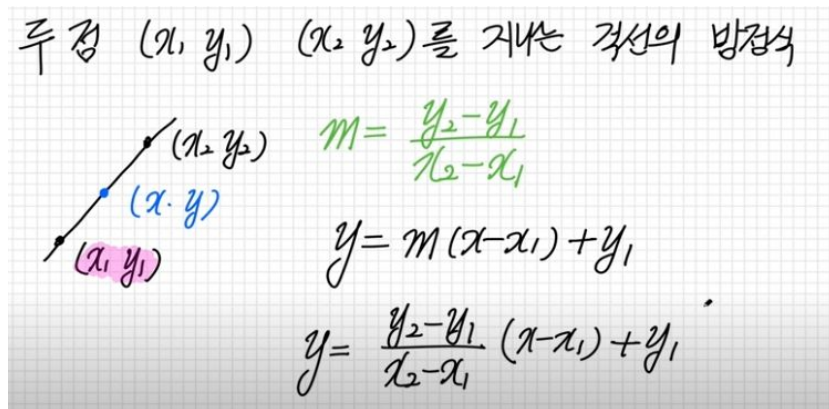 두 점 (x₁ y₁) (x₂ y₂)를 지나는 직선의 방정식
(x₂ y₂)
(x · y)
(x₁ y₁)
m = (y₂-y₁)/(x₂-x₁)
y = m(x-x₁)+y₁
y = (y₂-y₁)/(x₂-x₁) (x-x₁)+y₁